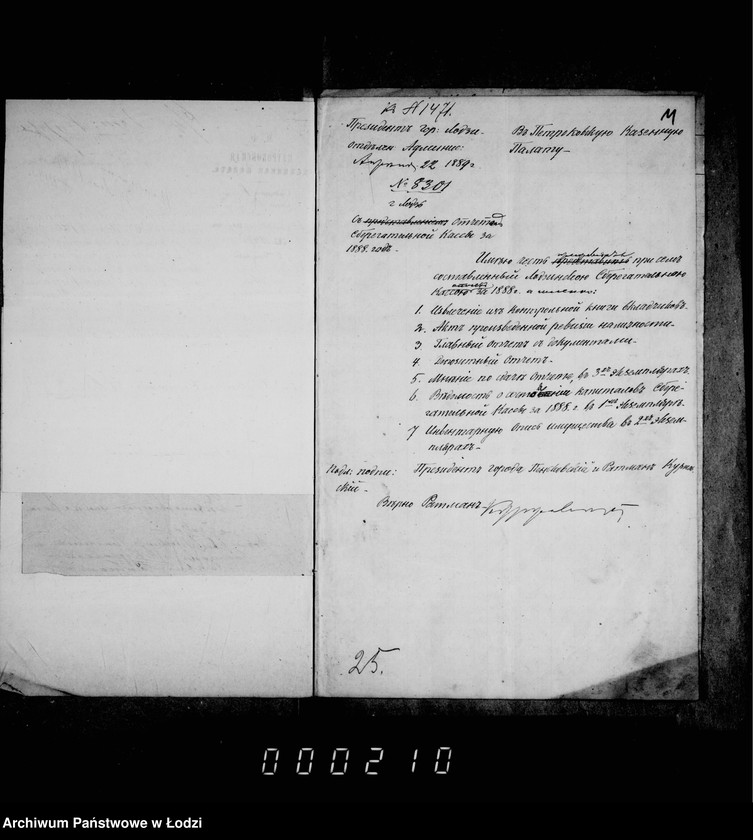 К № 1471.
Президентъ гор: Лодзи.
Отдѣлен Админис:
Апрѣля 22 1889 г
№ 8301
г Лодзь
Въ Петроковскую Казенную
Палату
Съ представленіемъ отчетовъ
Сберегательной Кассы за
1888 годъ
Имѣю честь при семъ
составленный Лодзинскою Сберегательною
Кассою за 1888 г. а именно:
1. Извлеченіе изъ контрольной книги вкладчиковъ.
2. Актъ произведенной ревизіи наличности.
3 Главный отчетъ съ документами.
4. Отчетъ.
5. Мнѣніе по сему отчету, въ 3хъ экземплярахъ.
6. Вѣдомость о капиталовъ Сбере-
гательной Кассы за 1888 г въ 1мъ экземпляр.
7 Инвентарную опись имущества въ 2хъ экзем-
плярахъ.
Подл: подпис: Президентъ города Пеньковскій и Ратманъ
скій.
Вѣрно Ратманъ
25.
000210
Archiwum Państwowe w Łodzi